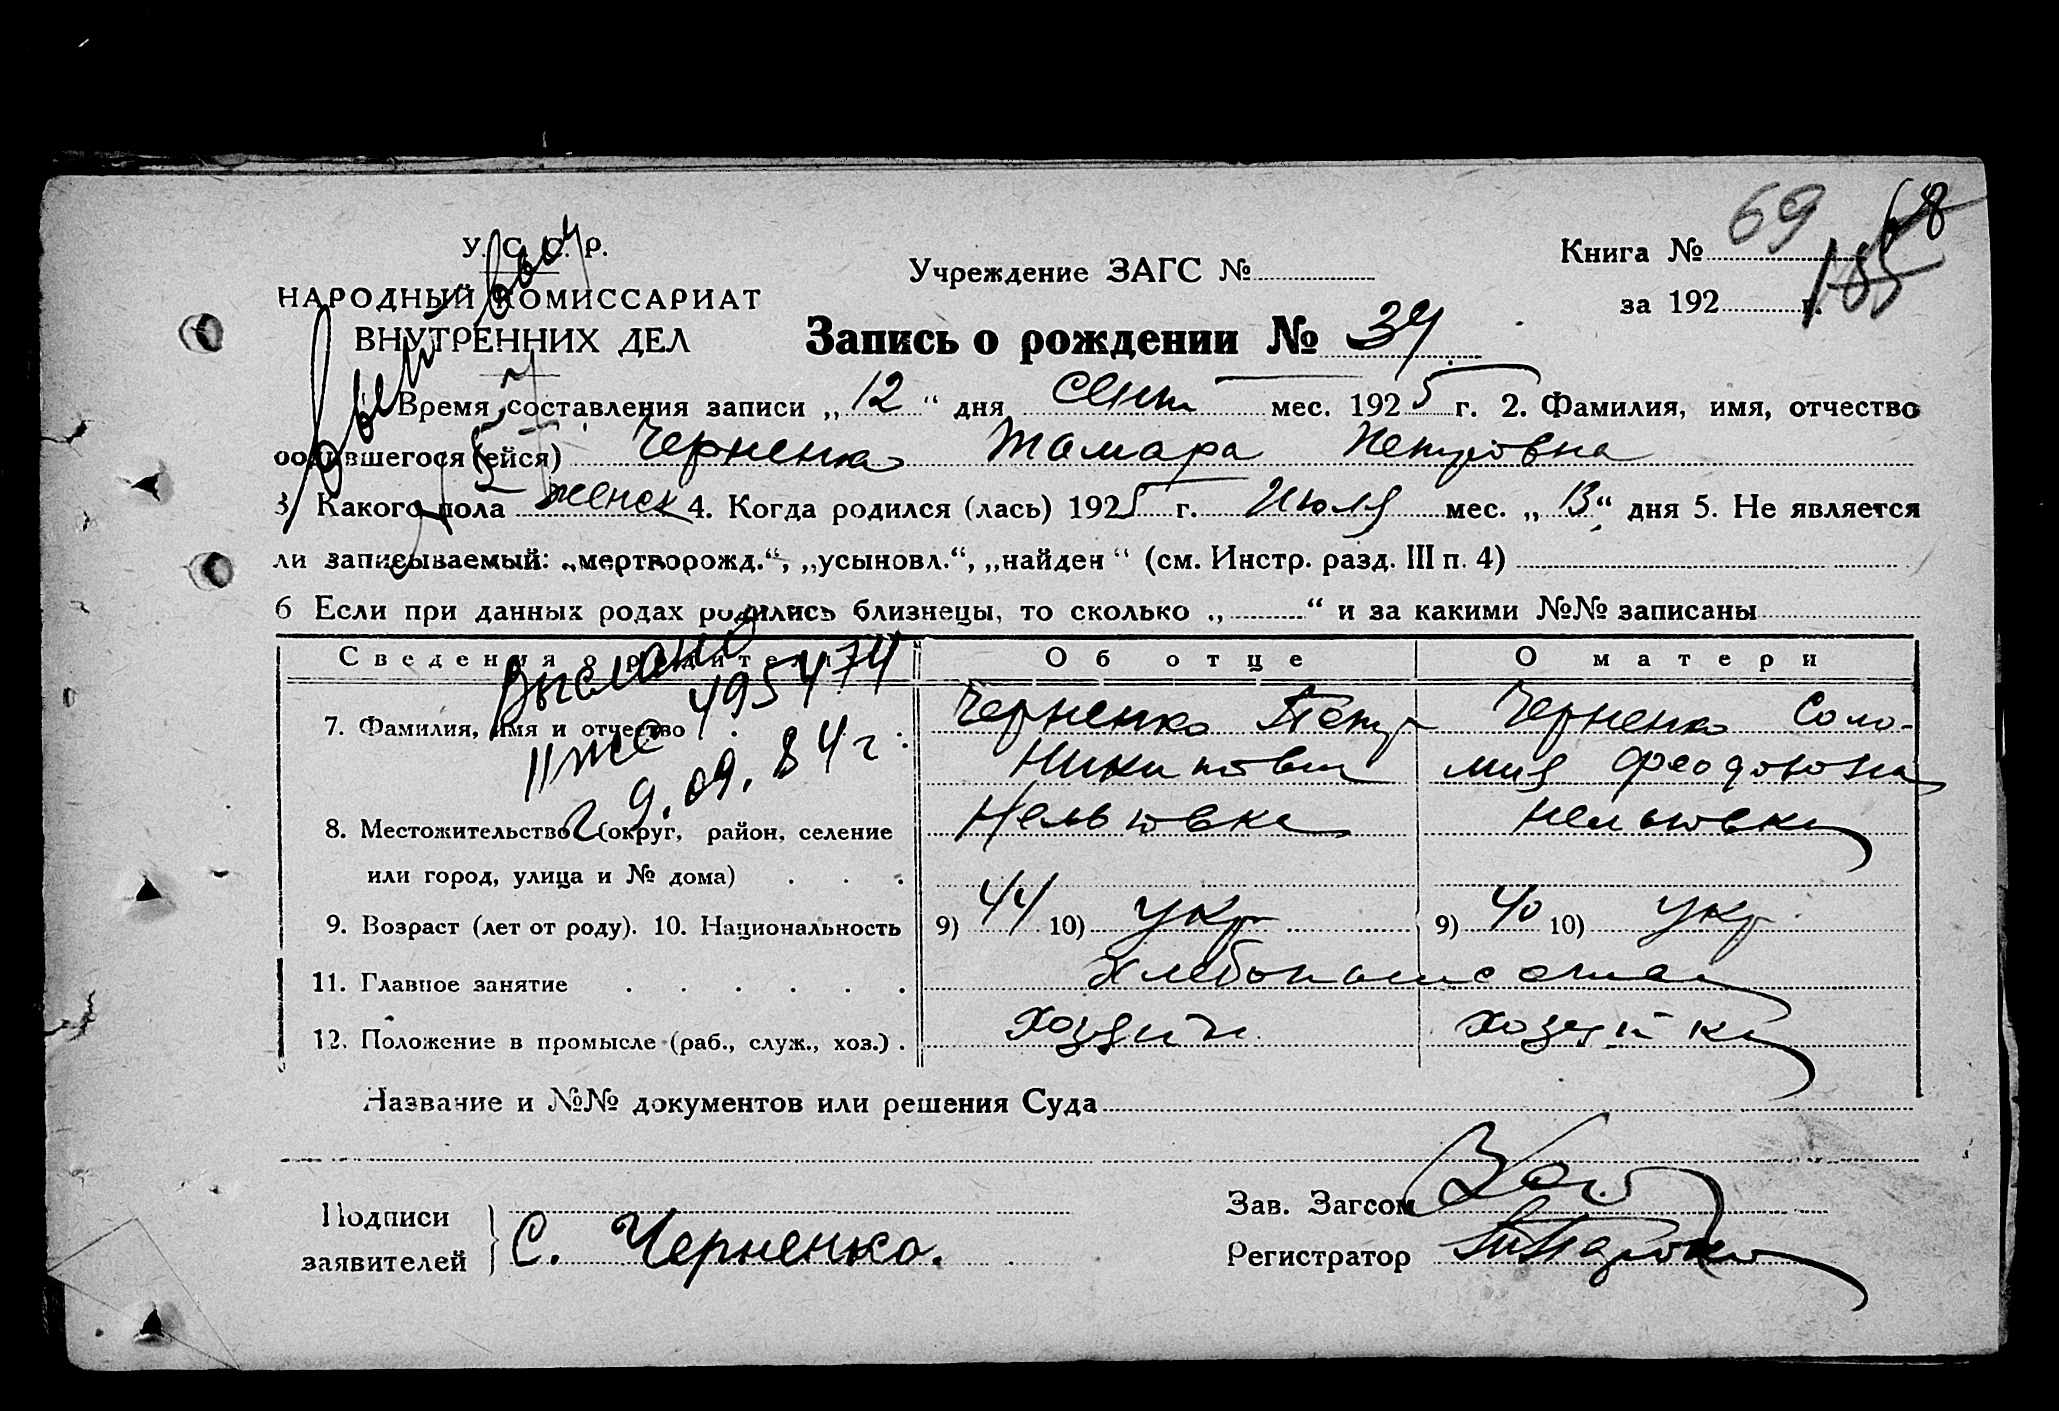 69 68
185
У. С. С. Р.
НАРОДНЫЙ КОМИССАРИАТ
ВНУТРЕННИХ ДЕЛ
Учреждение ЗАГС №
Книга №
за 192 г.
Запись о рождении № 34
Время составления записи „12“ дня сент мес. 1925 г. 2. Фамилия, имя, отчество
родившегося (ейся) Черненко Тамара Петровна
3 Какого пола женск 4. Когда родился (лась) 1925 г. Июля мес. „13“ дня 5. Не является
ли записываемый: „мертворожд.“, „усыновл.“, „найден“ (см. Инстр. разд. III п. 4)
6 Если при данных родах родились близнецы, то сколько „ “ и за какими №№ записаны
Сведения о родителях Об отце О матери
Выслано
495474
9.09.84 г
7. Фамилия, имя и отчество Черненко Петр Черненко Соло-
мия
8. Местожительство (округ, район, селение
или город, улица и № дома)
9. Возраст (лет от роду). 10. Национальность 9) 44 10) укр 9) 40 10) укр.
11. Главное занятие
12. Положение в промысле (раб., служ., хоз.) хозяин хозяйка
Название и №№ документов или решения Суда
Подписи
заявителей С. Черненко.
Зав. Загсом
Регистратор